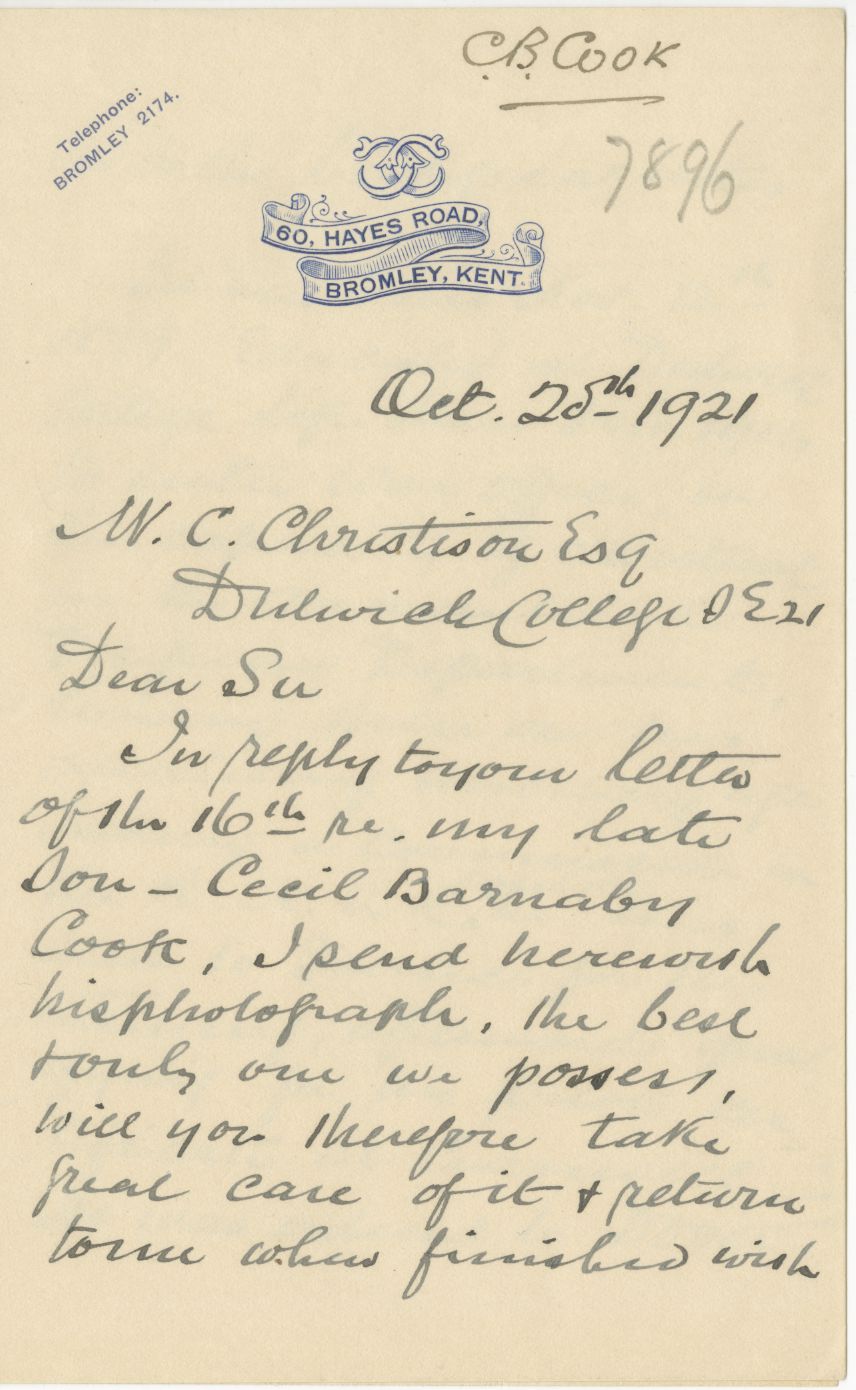 C.B. Cook
Telephone:
BROMLEY 2174.
7896
60, HAYES ROAD,
BROMLEY, KENT.
Oct. 25th 1921
W. C. Christison Esq
Dulwich College S E 21
Dear Sir
In reply to your letter
of the 16th re. my late
Son – Cecil Barnaby
Cook, I send herewith
his photograph, the best
& only one we possess,
will you therefore take
great care of it & return
to me when finished with